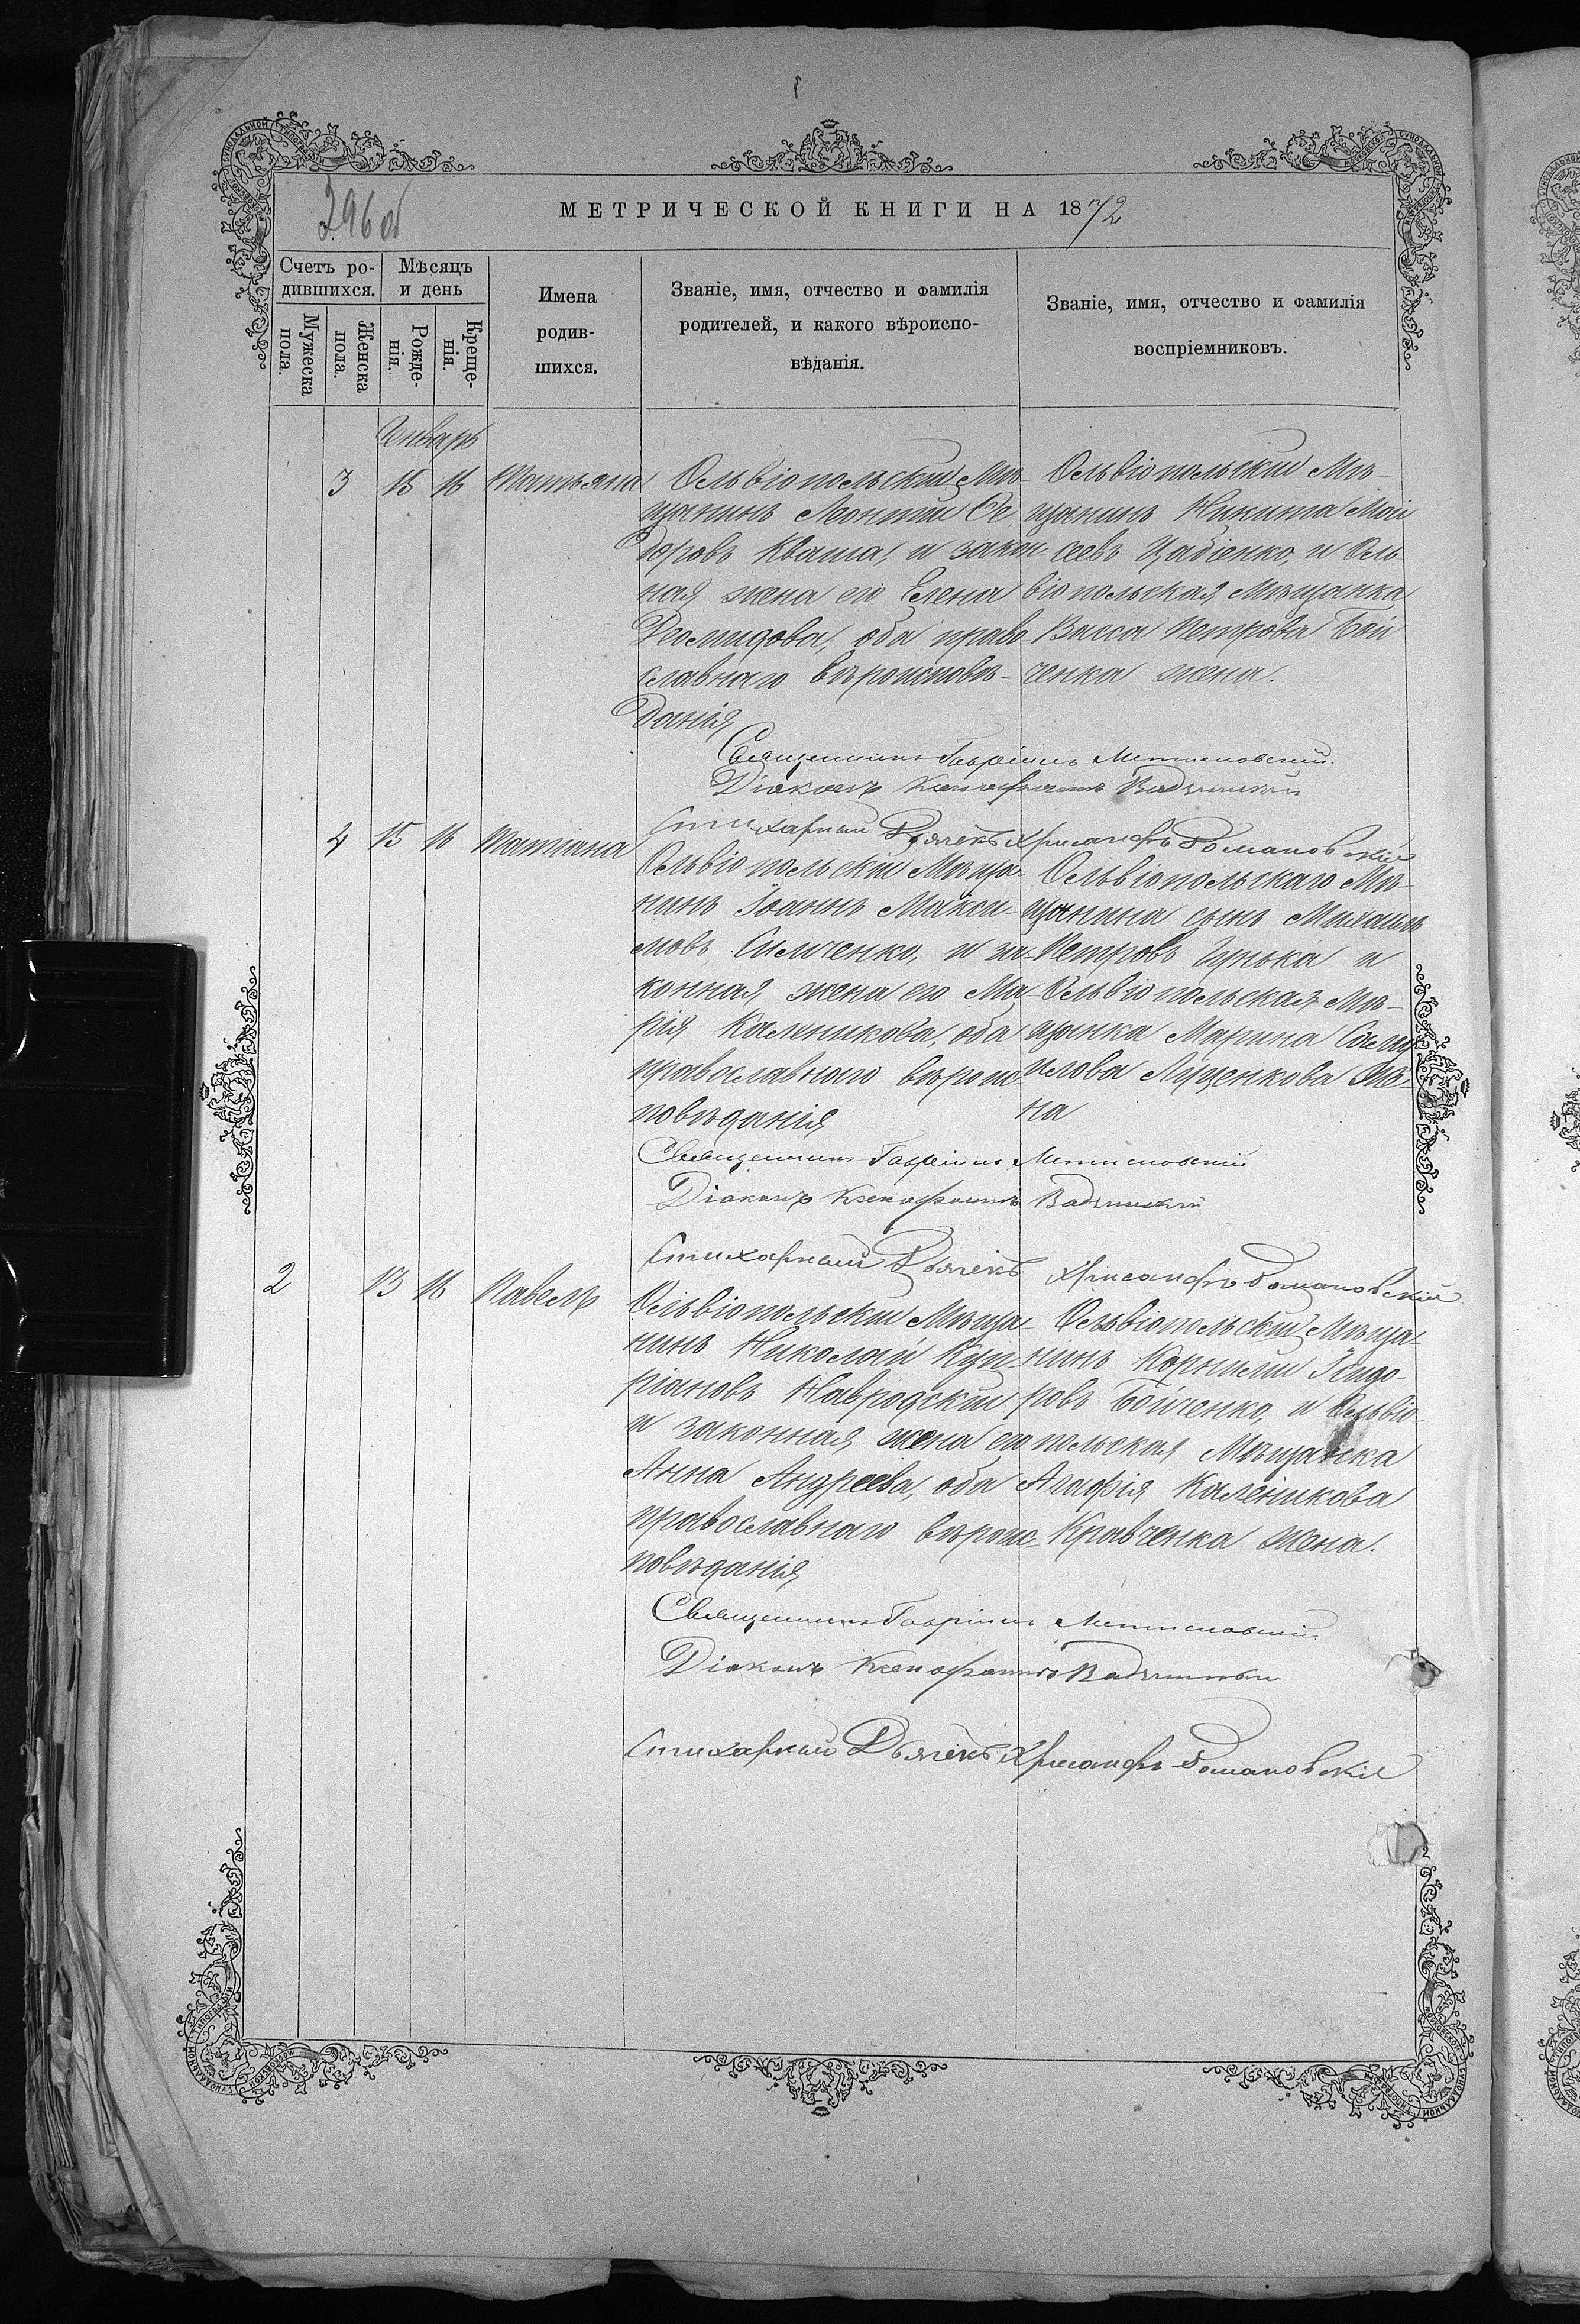 296 об
МЕТРИЧЕСКОЙ КНИГИ НА 1872
Счетъ родившихся.
Мѣсяцъ и день
Мужеска пола.
Женска пола.
Рожденія.
Крещенія.
Имена
родив-
шихся.
Званіе, имя, отчество и фамилія
родителей, и какого вѣроиспо-
вѣданія.
Званіе, имя, отчество и фамилія
воспріемниковъ.
Январь
3 15 16 Татьяна
Ольвіопольскій Мѣ-
щанинъ Леонтій Ѳе
доровъ Кваша, и закон-
ная жена его Елена
Деомидова, оба право-
славнаго вѣроисповѣ-
данія
Ольвіопольскій Мѣ-
щанинъ Никита Мой
сеевъ Цабіенко, и Оль
віопольская Мѣщанка
Васса Петрова Бой
ченка жена.
Священникъ Гавріилъ
Діаконъ Ксенофонтъ
Стихарный Дьячекъ Хрисанфъ Романовскій
4 15 16 Татіана
Ольвіопольскій Мѣща-
нинъ Іоаннъ Макси-
мовъ Симченко, и за-
конная жена его Ма-
рія Каленикова, оба
православнаго вѣроис-
повѣданія
Ольвіопольскаго Мѣ-
щанина сынъ Михаилъ
Петровъ Гунька и
Ольвіопольская Мѣ-
щанка Марина Саму
илова Луценкова же-
на
Священникъ Гавріилъ
Діаконъ Ксенофонтъ
Стихарный Дьячекъ Хрисанфъ Романовскій
2 13 16 Павелъ
Ольвіопольскій Мѣща-
нинъ Николай Куп-
ріановъ Навродскій
и законная жена его
Анна Андреева, оба
православнаго вѣроис-
повѣданія
Ольвіопольскій Мѣща-
нинъ Корнилій Ісидо-
ровъ Бойченко, и Ольвіо-
польская Мѣщанка
Агафія Каленикова
Кравченка жена.
Священникъ Гавріилъ
Діаконъ Ксенофонтъ
Стихарный Дьячекъ Хрисанфъ Романовскій